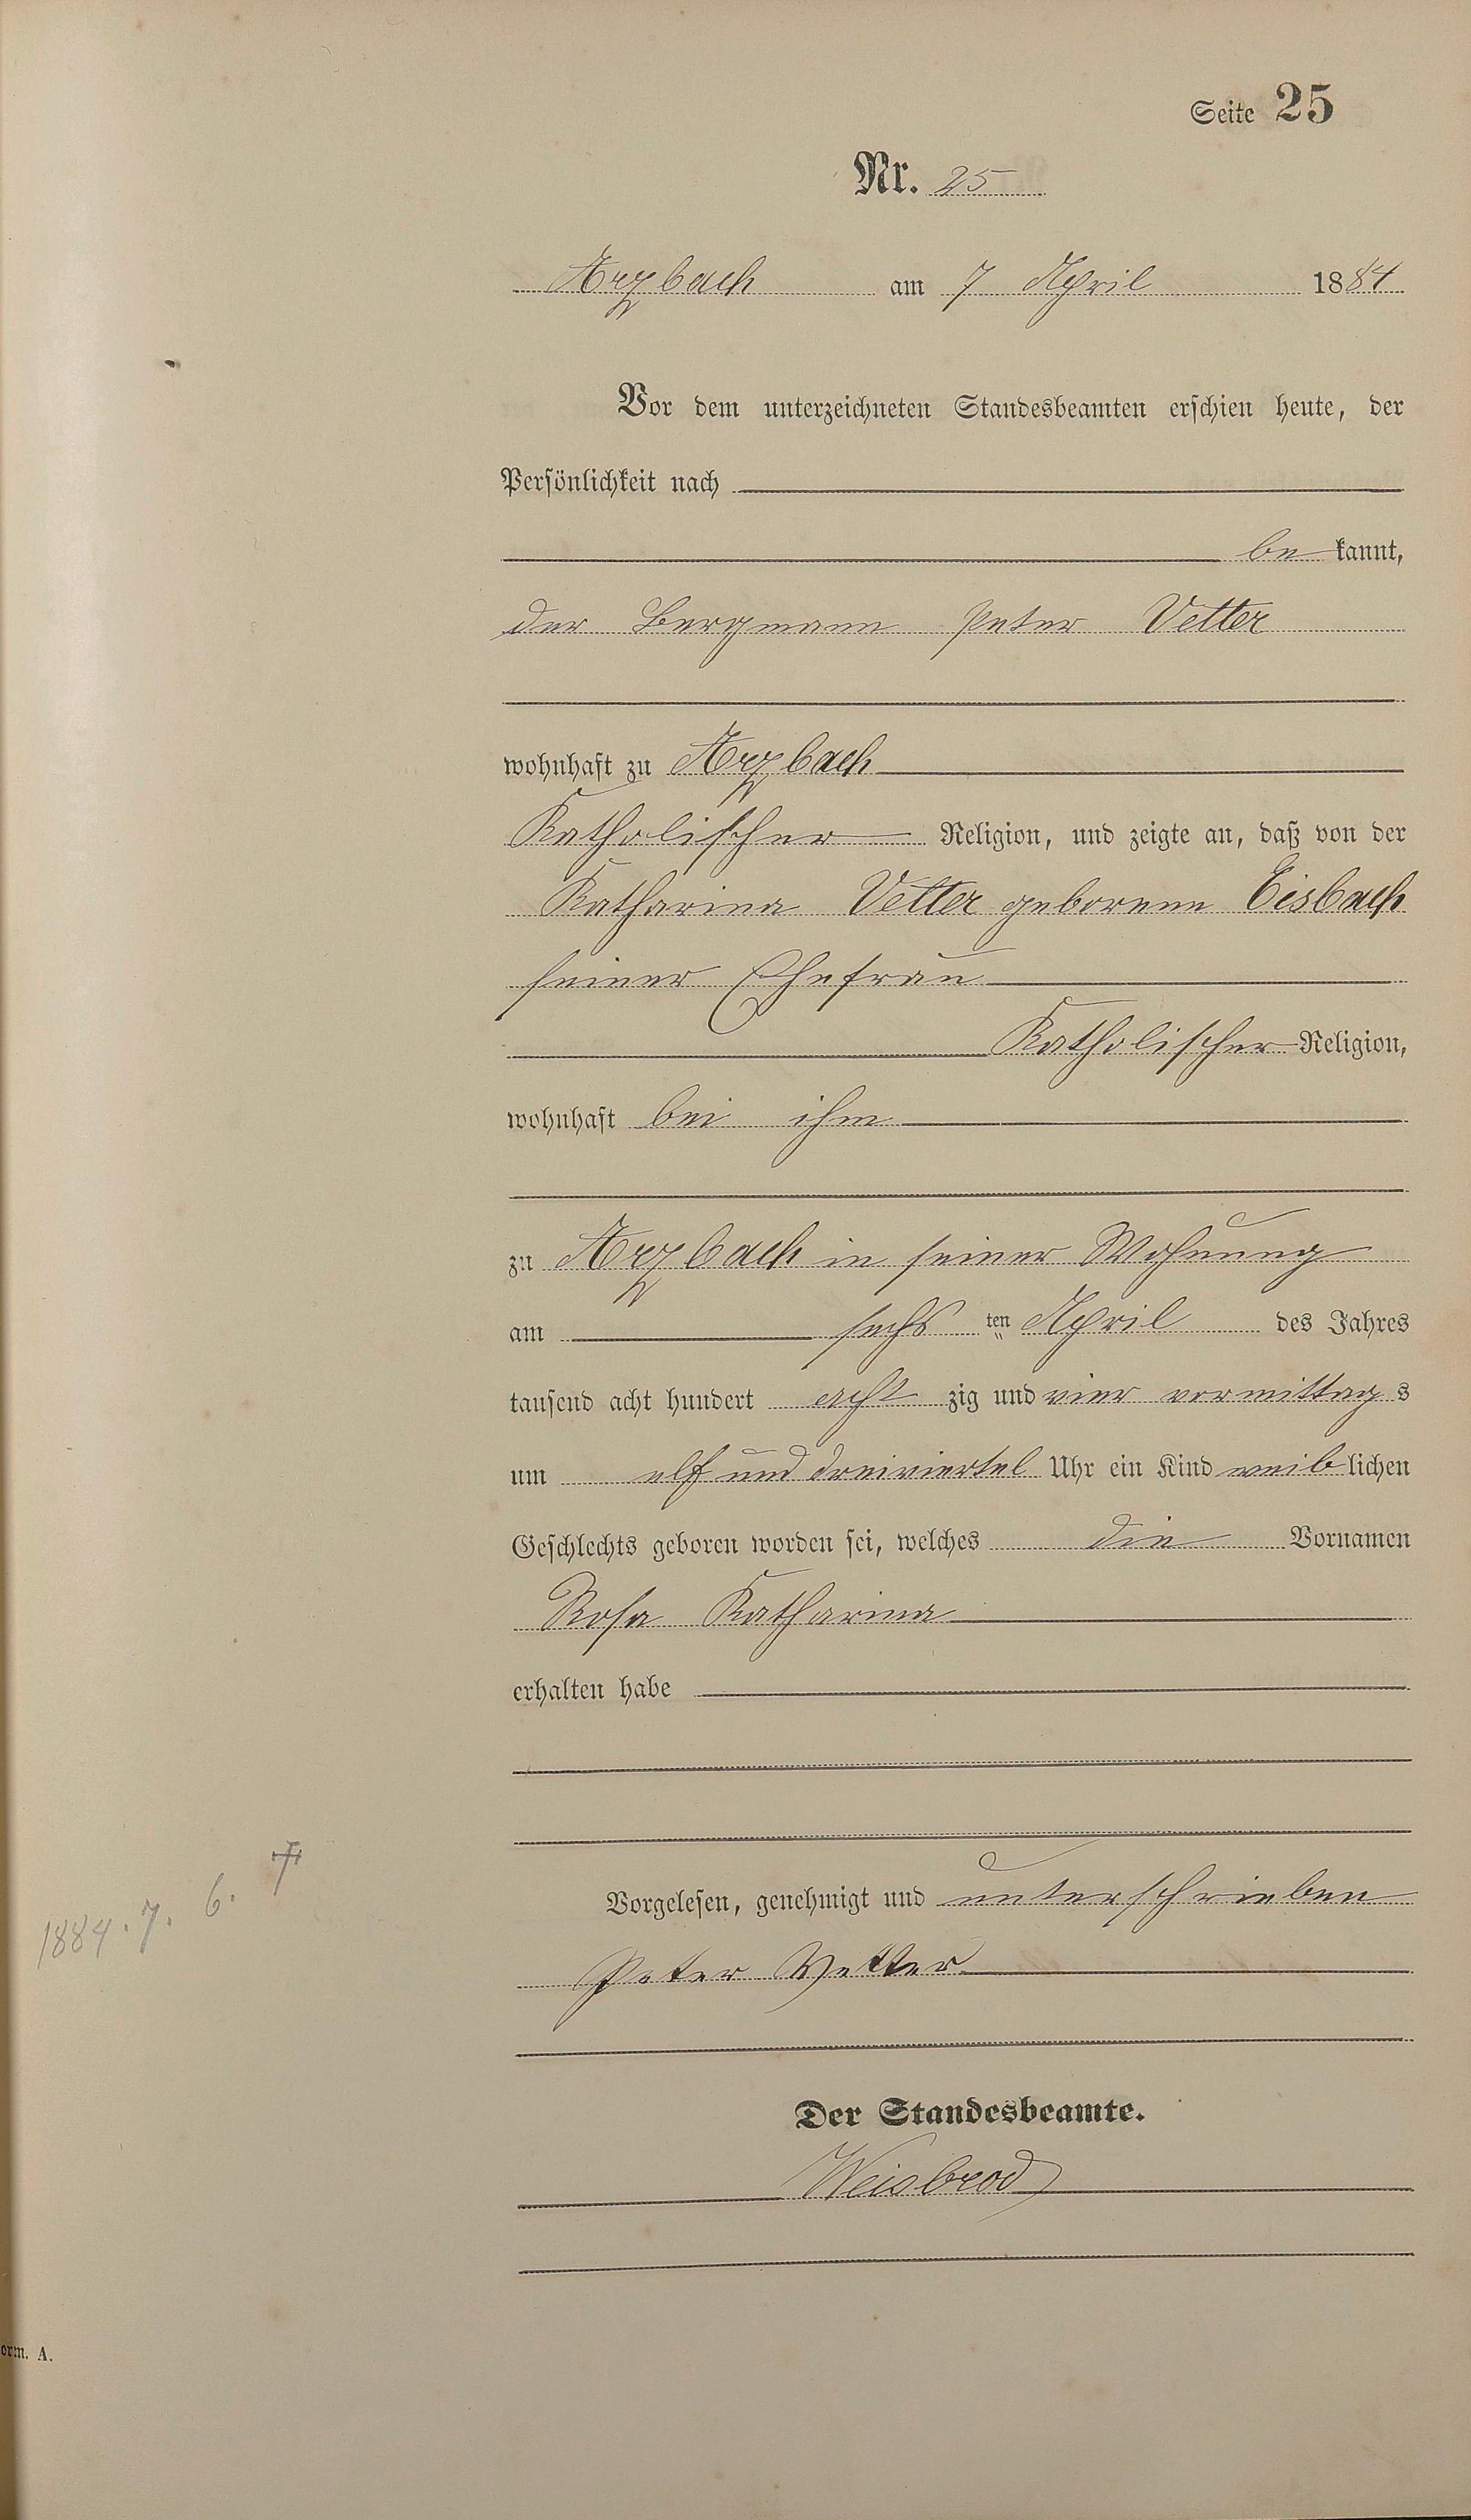 Seite 25
Nr. 25
Arzbach am 7 April 1884
Vor dem unterzeichneten Standesbeamten erschien heute, der
Persönlichkeit nach
be kannt,
der Bergmann Peter Vetter
wohnhaft zu Arzbach
Katholischer Religion, und zeigte an, daß von der
Katharina Vetter geborene Eisbach
seiner Ehefrau
Katholischer Religion,
wohnhaft bei ihm
zu Arzbach in seiner Wohnung
am sechs ten April des Jahres
tausend acht hundert acht zig und vier vormittag s
um elf und dreiviertel Uhr ein Kind weib lichen
Geschlechts geboren worden sei, welches die Vornamen
Rosa Katharina
erhalten habe
Vorgelesen, genehmigt und unterschrieben
1884. 7. 6.
Peter Vetter
Der Standesbeamte.
Weisbrod
orm. A.